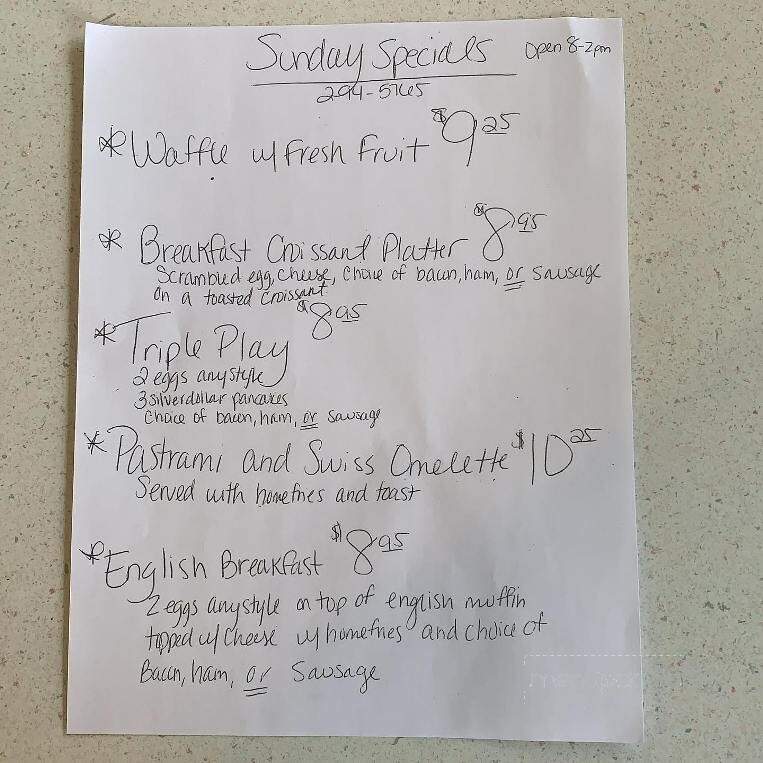 Sunday Specials
Open 8-2pm
294-5765
* Waffle w/ Fresh Fruit $9.25
* Breakfast Croissant Platter $8.95
Scrambled egg, cheese, choice of bacon, ham, or sausage
on a toasted croissant
* Triple Play $8.95
2 eggs any style
3 silverdollar pancakes
Choice of bacon, ham, or sausage
* Pastrami and Swiss Omelette $10.25
Served with homefries and toast
* English Breakfast $8.95
2 eggs anystyle on top of english muffin
topped w/ cheese w/ homefries and choice of
Bacon, ham, or Sausage